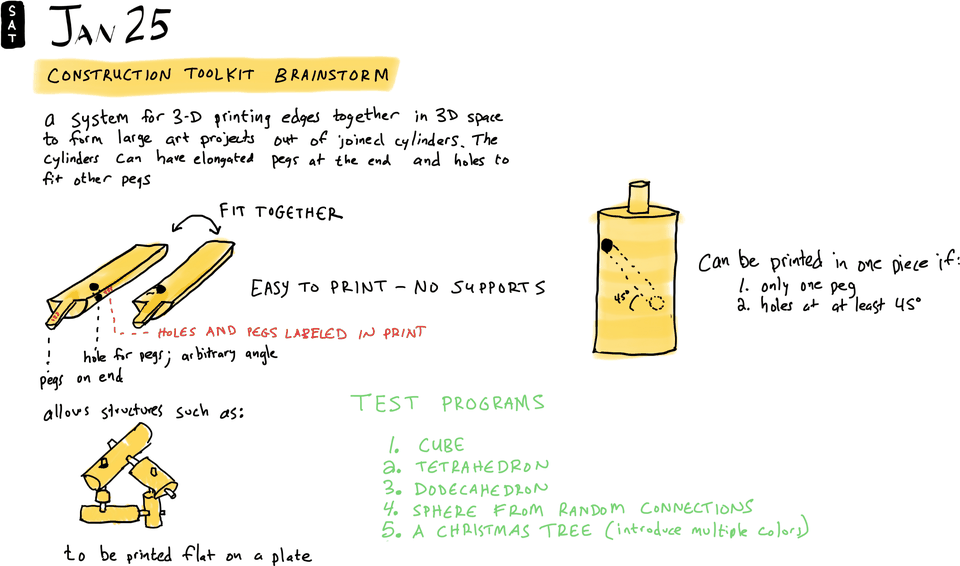 SAT
JAN 25
CONSTRUCTION TOOLKIT BRAINSTORM
a system for 3-D printing edges together in 3D space
to form large art projects out of joined cylinders. The
cylinders can have elongated pegs at the end and holes to
fit other pegs
FIT TOGETHER
EASY TO PRINT - NO SUPPORTS
HOLES AND PEGS LABELED IN PRINT
hole for pegs; arbitrary angle
pegs on end
allows structures such as:
to be printed flat on a plate
45°
Can be printed in one piece if:
1. only one peg
2. holes at at least 45°
TEST PROGRAMS
1. CUBE
2. TETRAHEDRON
3. DODECAHEDRON
4. SPHERE FROM RANDOM CONNECTIONS
5. A CHRISTMAS TREE (introduce multiple colors)